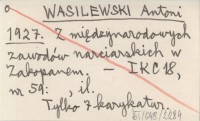 WASILEWSKI Antoni
1927. Z międzynarodowych
zawodów narciarskich w
Zakopanem. — IKC 18,
nr 59: il.
Tylko 7 karykatur.